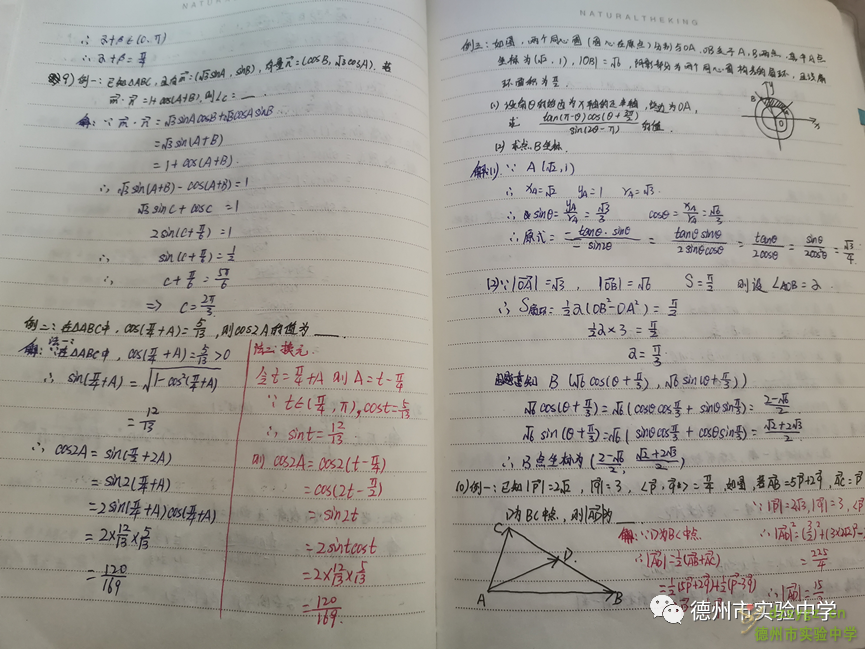 NATURAL
∴ α+β∈(0,π)
∴ α+β=π/4
(9) 例一:已知△ABC, 且向量m=(√3sinA, sinB), 向量n=(cosB, √3cosA), 若
m·n=1+cos(A+B), 则∠C=___
解: ∵ m·n=√3sinAcosB+√3cosAsinB
=√3sin(A+B)
=1+cos(A+B)
∴ √3sin(A+B)-cos(A+B)=1
√3sinC+cosC=1
2sin(C+π/6)=1
∴ sin(C+π/6)=1/2
∴ C+π/6=5π/6
⇒ C=2π/3
例二:在△ABC中, cos(π/4+A)=5/13, 则cos2A的值为___.
法一:
解: ∵在△ABC中, cos(π/4+A)=5/13>0
∴ sin(π/4+A)=√(1-cos²(π/4+A))
=12/13
∴ cos2A=sin(π/2+2A)
=sin2(π/4+A)
=2sin(π/4+A)cos(π/4+A)
=2×12/13×5/13
=120/169
法二:换元.
令t=π/4+A 则A=t-π/4
∵ t∈(π/4,π), cost=5/13
∴ sint=12/13
则cos2A=cos2(t-π/4)
=cos(2t-π/2)
=sin2t
=2sintcost
=2×12/13×5/13
=120/169.
NATURALTHEKING
例三:如图, 两个同心圆(圆心在原点)分别与OA, OB交于A, B两点, 其中A点
坐标为(√2,1), |OB|=√6, 阴影部分为两个同心圆构成的扇环, 且该扇
环面积为π/2.
(1) 设角θ的始边为x轴的正半轴, 终边为OA,
求 tan(π-θ)cos(θ+3π/2)/sin(2θ-π) 的值.
(2) 求点B坐标.
y
B
A
O
x
解:(1) ∵ A(√2,1)
∴ xA=√2 yA=1 rA=√3.
∴ sinθ=yA/rA=√3/3 cosθ=xA/rA=√6/3
∴ 原式=-tanθ·sinθ/-sin2θ=tanθsinθ/2sinθcosθ=tanθ/2cosθ=sinθ/2cos²θ=√3/4
(2) ∵|OA|=√3, |OB|=√6 S=π/2 则设∠AOB=α
∴ S扇环=1/2α(OB²-OA²)=π/2
1/2α×3=π/2
α=π/3
B(√6cos(θ+π/3), √6sin(θ+π/3))
√6cos(θ+π/3)=√6(cosθcosπ/3+sinθsinπ/3)=2-√6/2
√6sin(θ+π/3)=√6(sinθcosπ/3+cosθsinπ/3)=√2+2√3/2
∴ B点坐标为(2-√6/2, √2+2√3/2)
(10) 例一:已知|p|=2√2, |q|=3, <p,q>=π/4, 如图, 若AB=5p+2q, AC=p
D为BC中点, 则|AD|为___
C
D.
A
B
解: ∵D为BC中点
∴|AD|=1/2(AB+AC)
=1/2(5p+2q)+1/2(p-3q)
∵|p|=2√3, |q|=3, <p
=225/4
∴|AD|=15/2
德州市实验中学
德州市实验中学